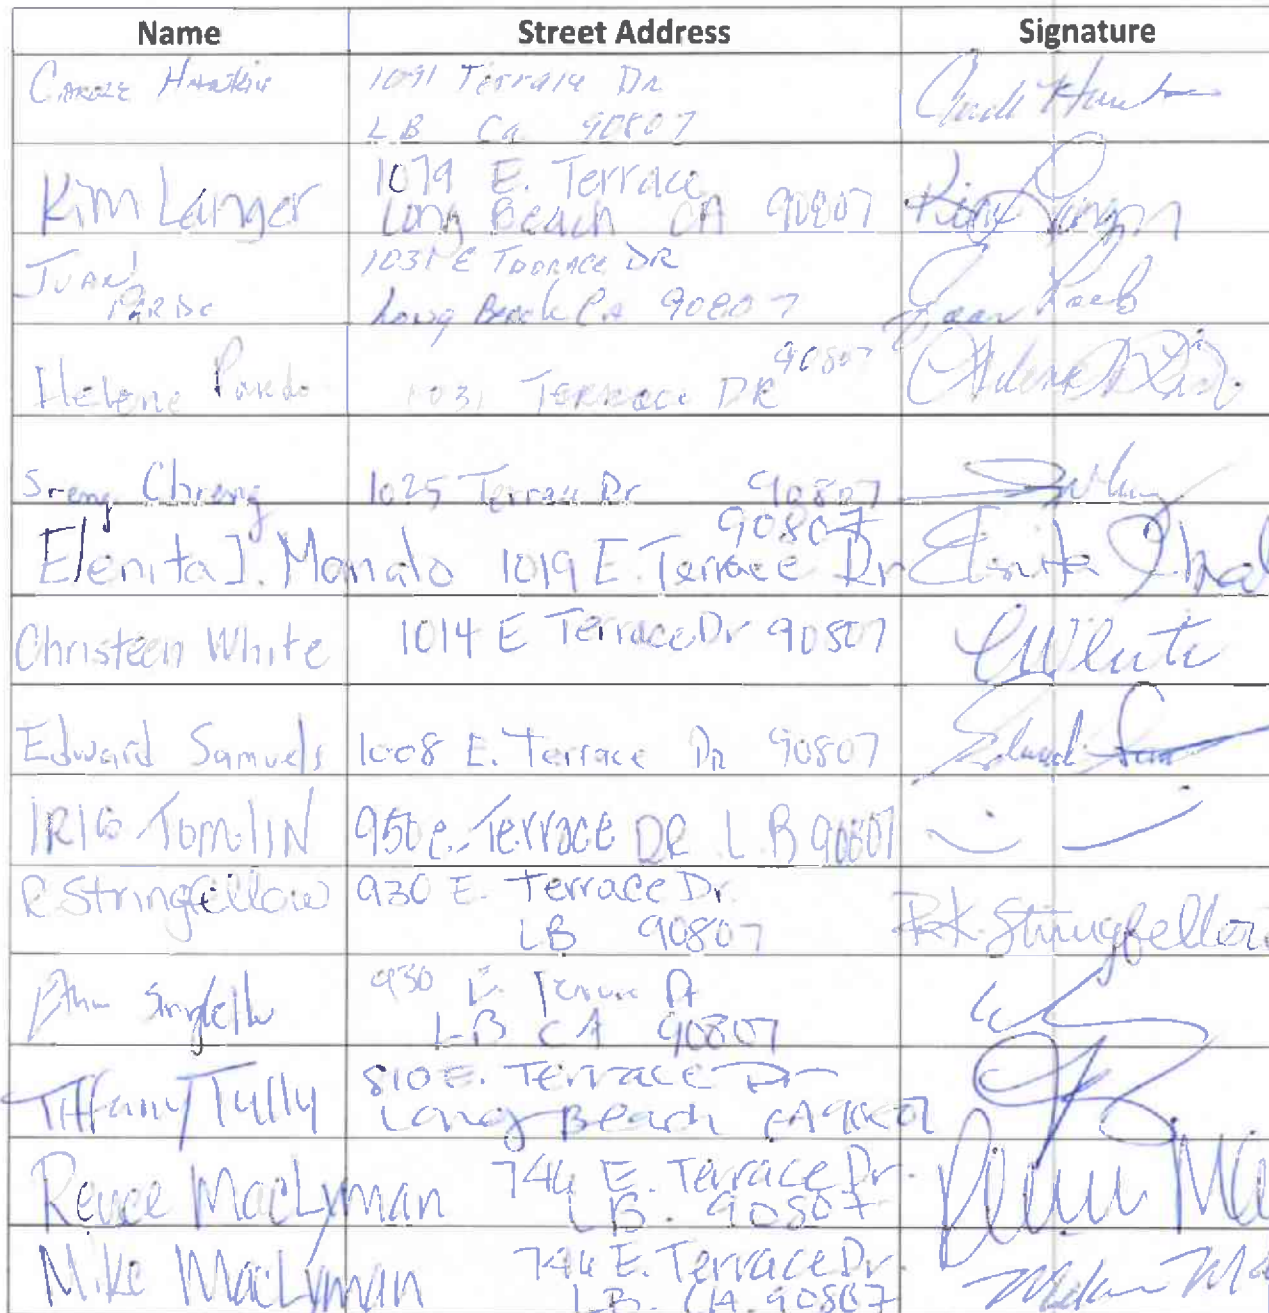 Name Street Address Signature
CAROLE 1091 Terrace DR
LB Ca 90807
Kim Langer 1079 E. Terrace
Long Beach CA 90807 Kim Langer
JUAN 1031 E DR
Long Beach Ca 90807
Helene 1031 TERRACE DR 90807
Sreng Chreng 1025 Terrace Dr 90807
Elenita J. Manalo 1019 E. Terrace Dr 90807 Elenita
Christeen White 1014 E Terrace Dr 90807 CWhite
Edward Samuels 1008 E. Terrace DR 90807 Edward
TOMLIN 950 e. Terrace DR L.B 90807
R Stringfellow 930 E. Terrace Dr.
LB 90807 R.K. Stringfellow
930 E. Terrace Dr
LB CA 90807
Tiffany Tully 810 E. Terrace Dr
Long Beach CA 90807
MacLyman 746 E. Terrace Dr.
LB. 90807
Mike MacLyman 746 E. Terrace Dr
LB. CA. 90807